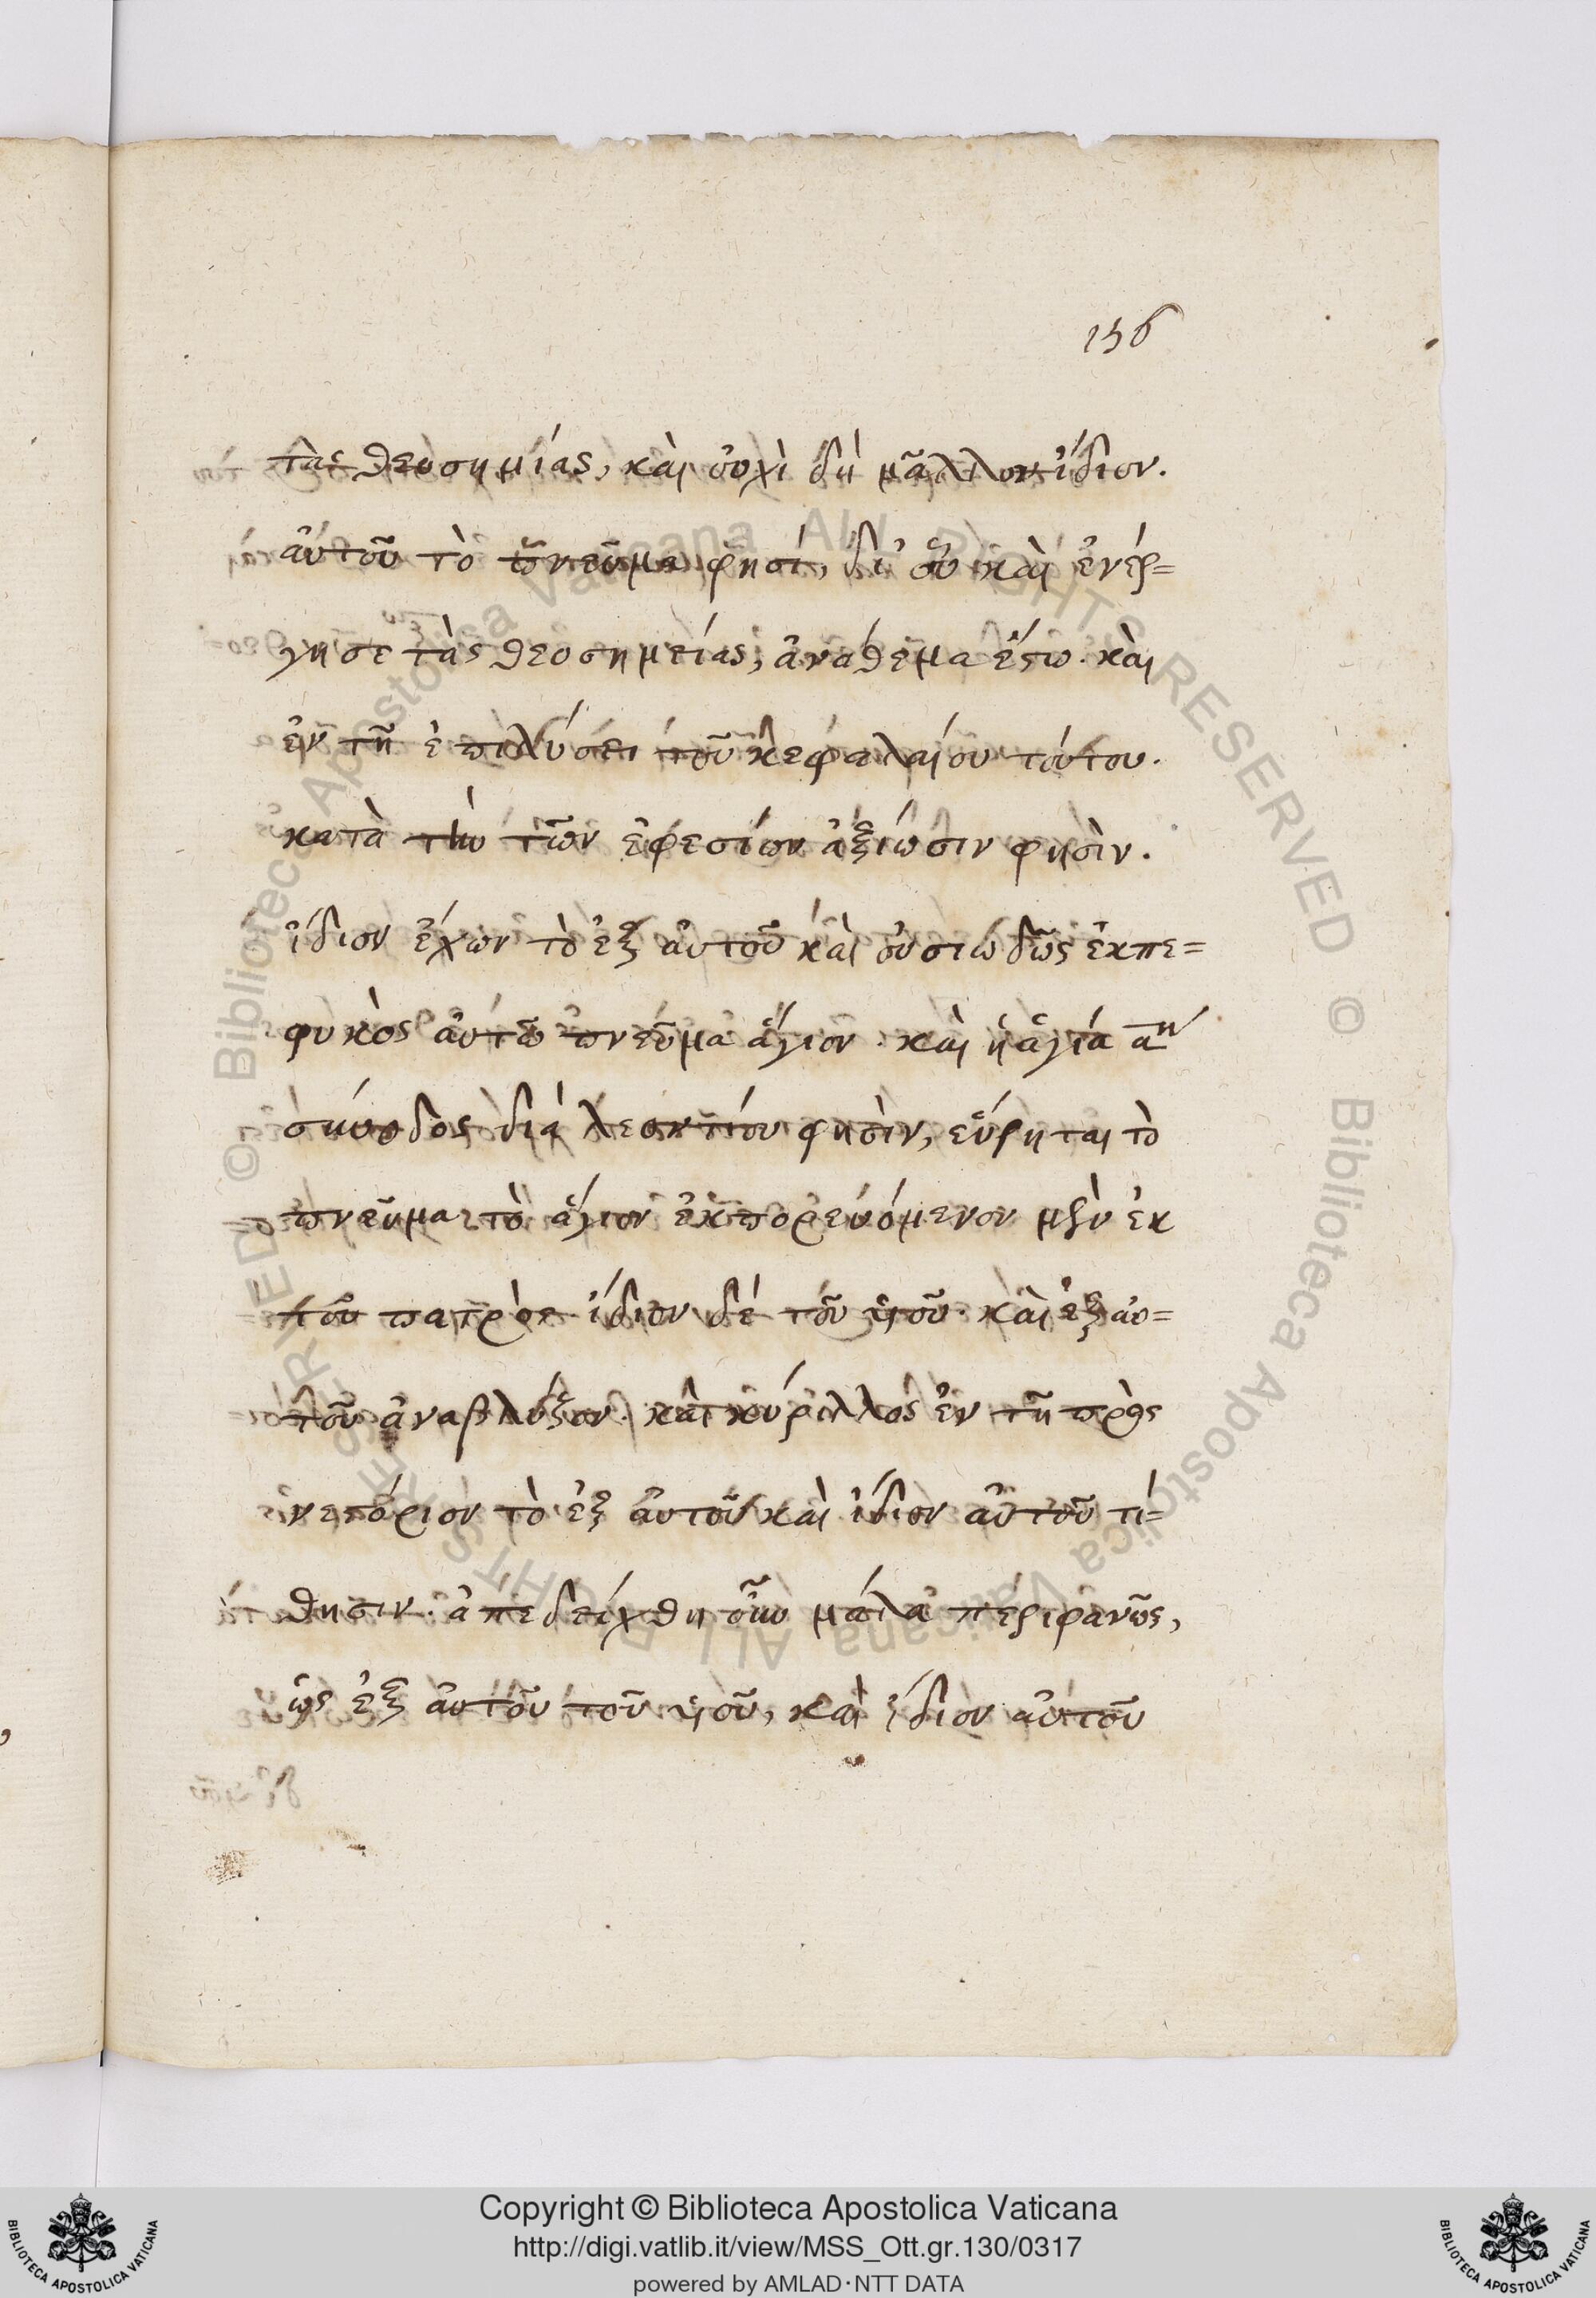 156
τὰς θεοσημίας, καὶ οὐχὶ δὴ μᾶλλον ἴδιον.
αὐτοῦ τὸ πνεῦμα φησί, δι' οὗ καὶ ἐνέρ=
γησε τὰς θεοσημείας, ἀνάθεμα ἔστω. καὶ
ἐν τῇ ἐπιλύσει τοῦ κεφαλαίου τούτου.
κατὰ τὴν τῶν ἐφεσίων ἀξίωσιν φησὶν.
ἴδιον ἔχων τὸ ἐξ αὐτοῦ καὶ οὐσιωδῶς ἐκπε=
φυκὸς αὐτῶ πνεῦμα ἅγιον. καὶ ἡ ἁγία αʹⁿ
σύνοδος διὰ λεοντίου φησὶν, εὕρηται τὸ
πνεῦμα τὸ ἅγιον ἐκπορευόμενον μὲν ἐκ
τοῦ πατρὸς ἴδιον δέ τοῦ υἱοῦ. καὶ ἐξ αὐ=
τοῦ ἀναβλύζον. καὶ κύριλλος ἐν τῇ πρὸς
νεστόριον τὸ ἐξ αὐτοῦ καὶ ἴδιον αὐτοῦ τί=
θησιν. ἀπεδείχθη οὖν μάλα περιφανῶς,
ὡς ἐξ αὐτοῦ τοῦ υἱοῦ, καὶ ἴδιον αὐτοῦ
© Biblioteca Apostolica Vaticana ALL RIGHTS RESERVED © Biblioteca Apostolica Vaticana ALL RIGHTS RESERVED
Copyright © Biblioteca Apostolica Vaticana
http://digi.vatlib.it/view/MSS_Ott.gr.130/0317
powered by AMLAD·NTT DATA
BIBLIOTECA APOSTOLICA VATICANA
BIBLIOTECA APOSTOLICA VATICANA